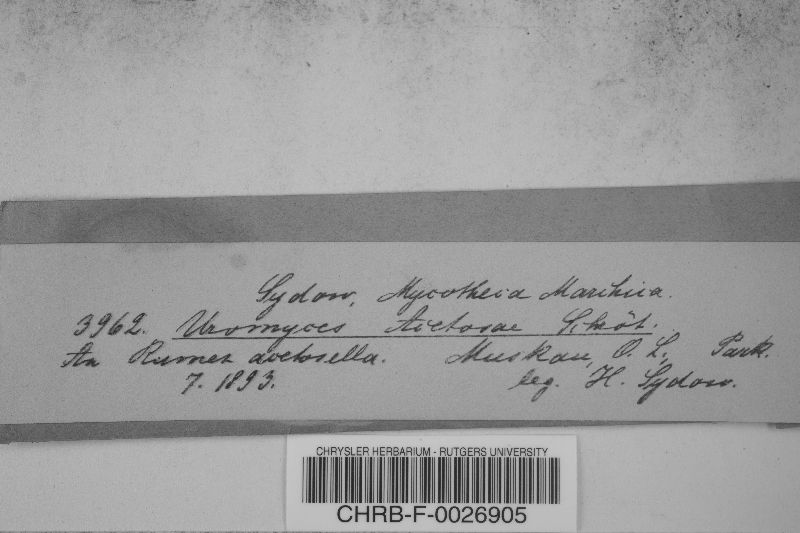 Sydow, Mycotheca Marchica.
3962. Uromyces Acetosae Schröt.
An Rumex acetosella. Muskau, O. L., Park.
7. 1893. leg. H. Sydow.
CHRYSLER HERBARIUM - RUTGERS UNIVERSITY
CHRB-F-0026905